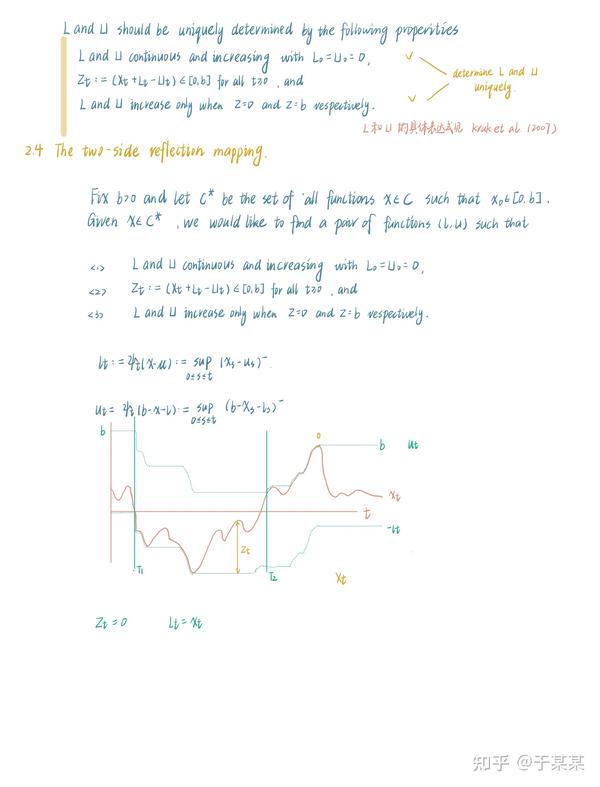 L and U should be uniquely determined by the following properities
L and U continuous and increasing with L₀=U₀=0,
Zt := (Xt+Lt-Ut)∈[0,b] for all t≥0, and
L and U increase only when Z=0 and Z=b respectively.
determine L and U
uniquely.
L和U的具体表达式见 kruk et al (2007)
2.4 The two-side reflection mapping.
Fix b>0 and let C* be the set of all functions x∈C such that x₀∈[0,b].
Given x∈C*, we would like to find a pair of functions (l,u) such that
<1> L and U continuous and increasing with L₀=U₀=0,
<2> Zt := (Xt+Lt-Ut)∈[0,b] for all t≥0, and
<3> L and U increase only when Z=0 and Z=b respectively.
lt := ψt(x-u) := sup (xs-us)⁻
0≤s≤t
ut = ψt(b-x-l) := sup (b-xs-ls)⁻
0≤s≤t
b
0
b ut
xt
t
-lt
Zt
T1
T2
Xt
Zt=0 Lt=xt
知乎 @于某某